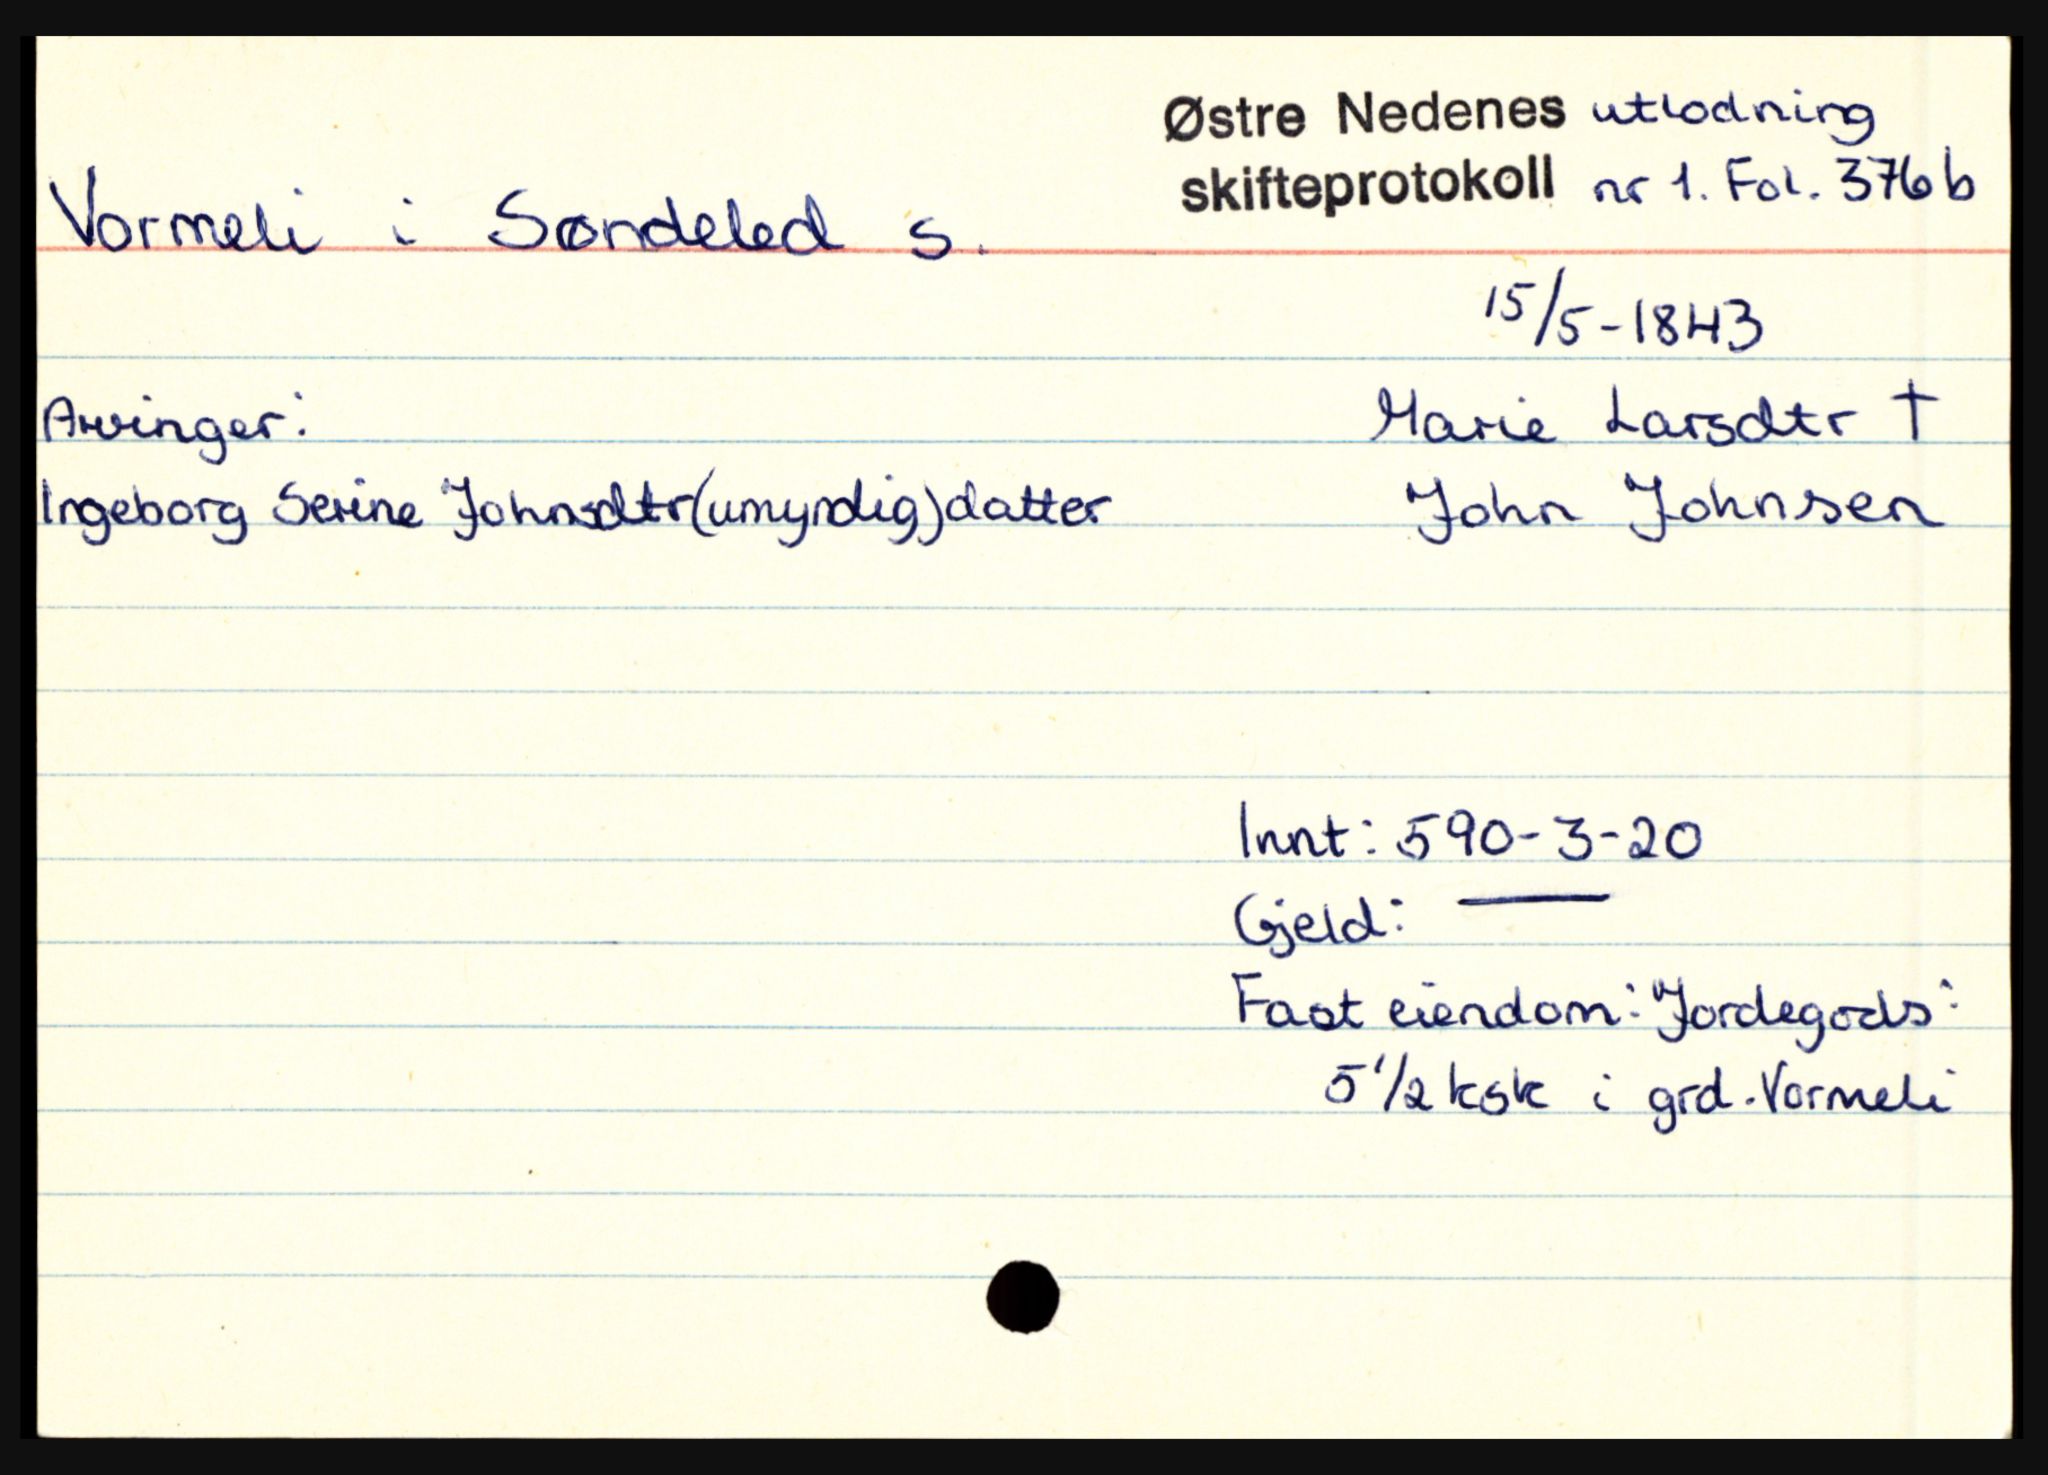 Østre Nedenes utlodning
skifteprotokoll nr 1. Fol. 376b
Vormeli i Søndeled s.
15/5-1843
Arvinger: Marie Larsdtr †
Ingeborg Serine Johnsdtr (umyndig) datter John Johnsen
Innt: 590-3-20
Gjeld: —
Fast eiendom: Jordegods:
5 1/2 ksk i grd. Vormeli